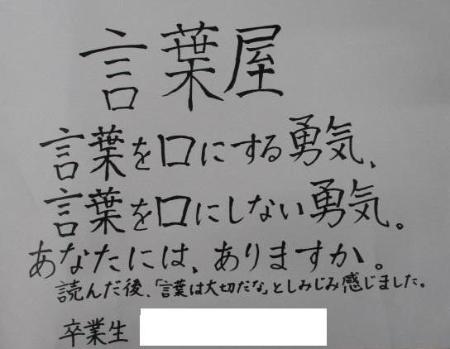 言葉屋
言葉を口にする勇気、
言葉を口にしない勇気。
あなたには、ありますか。
読んだ後、「言葉は大切だな」としみじみ感じました。
卒業生